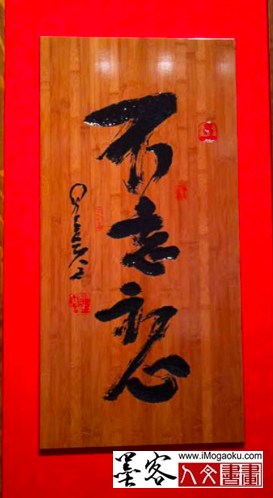 不忘初心
www.iMogaoku.com
墨客人文書畫